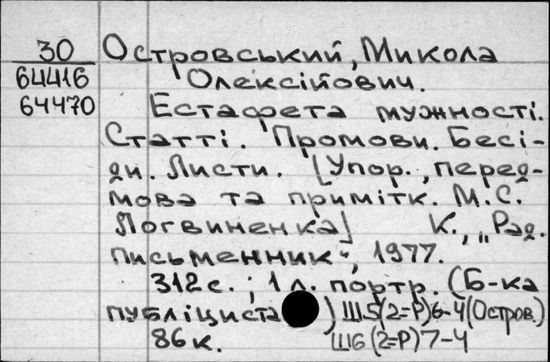 30 Островський, Микола
64416 Олексійович.
64470 Естафета мужності.
Статті. Промови. Бесі-
ди. Листи. [Упор., перед-
мова та примітк. М.С.
Логвиненка] К., „Рад.
письменник", 1977.
312с.; 1 л. портр. (Б-ка
публіциста) Ш5(2=Р)6-4(Остров.)
86к. Ш6(2=Р)7-4